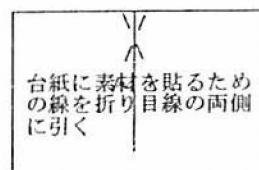 台紙に素材を貼るため
の線を折り目線の両側
に引く